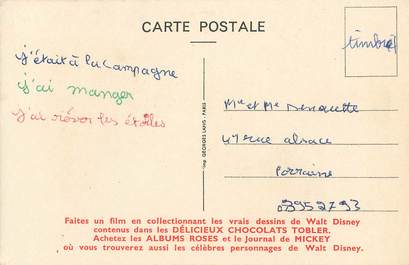 CARTE POSTALE
timbre
j'était à la campagne
j'ai manger
j'ai rêver les étoiles
Imp. GEORGES LANG - PARIS
Mr et Me
47 rue alsace
Lorraine
Faites un film en collectionnant les vrais dessins de Walt Disney
contenus dans les DÉLICIEUX CHOCOLATS TOBLER.
Achetez les ALBUMS ROSES et le Journal de MICKEY
où vous trouverez aussi les célèbres personnages de Walt Disney.